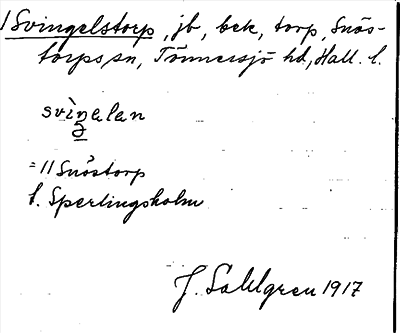 /Svingelstorp, jb, bek, torp, Snös-
torps sn, Tönnersjö hd, Hall. l.
svìŋalan
2
= // Snöstorp
t. Sperlingsholm
J. Sahlgren 1917